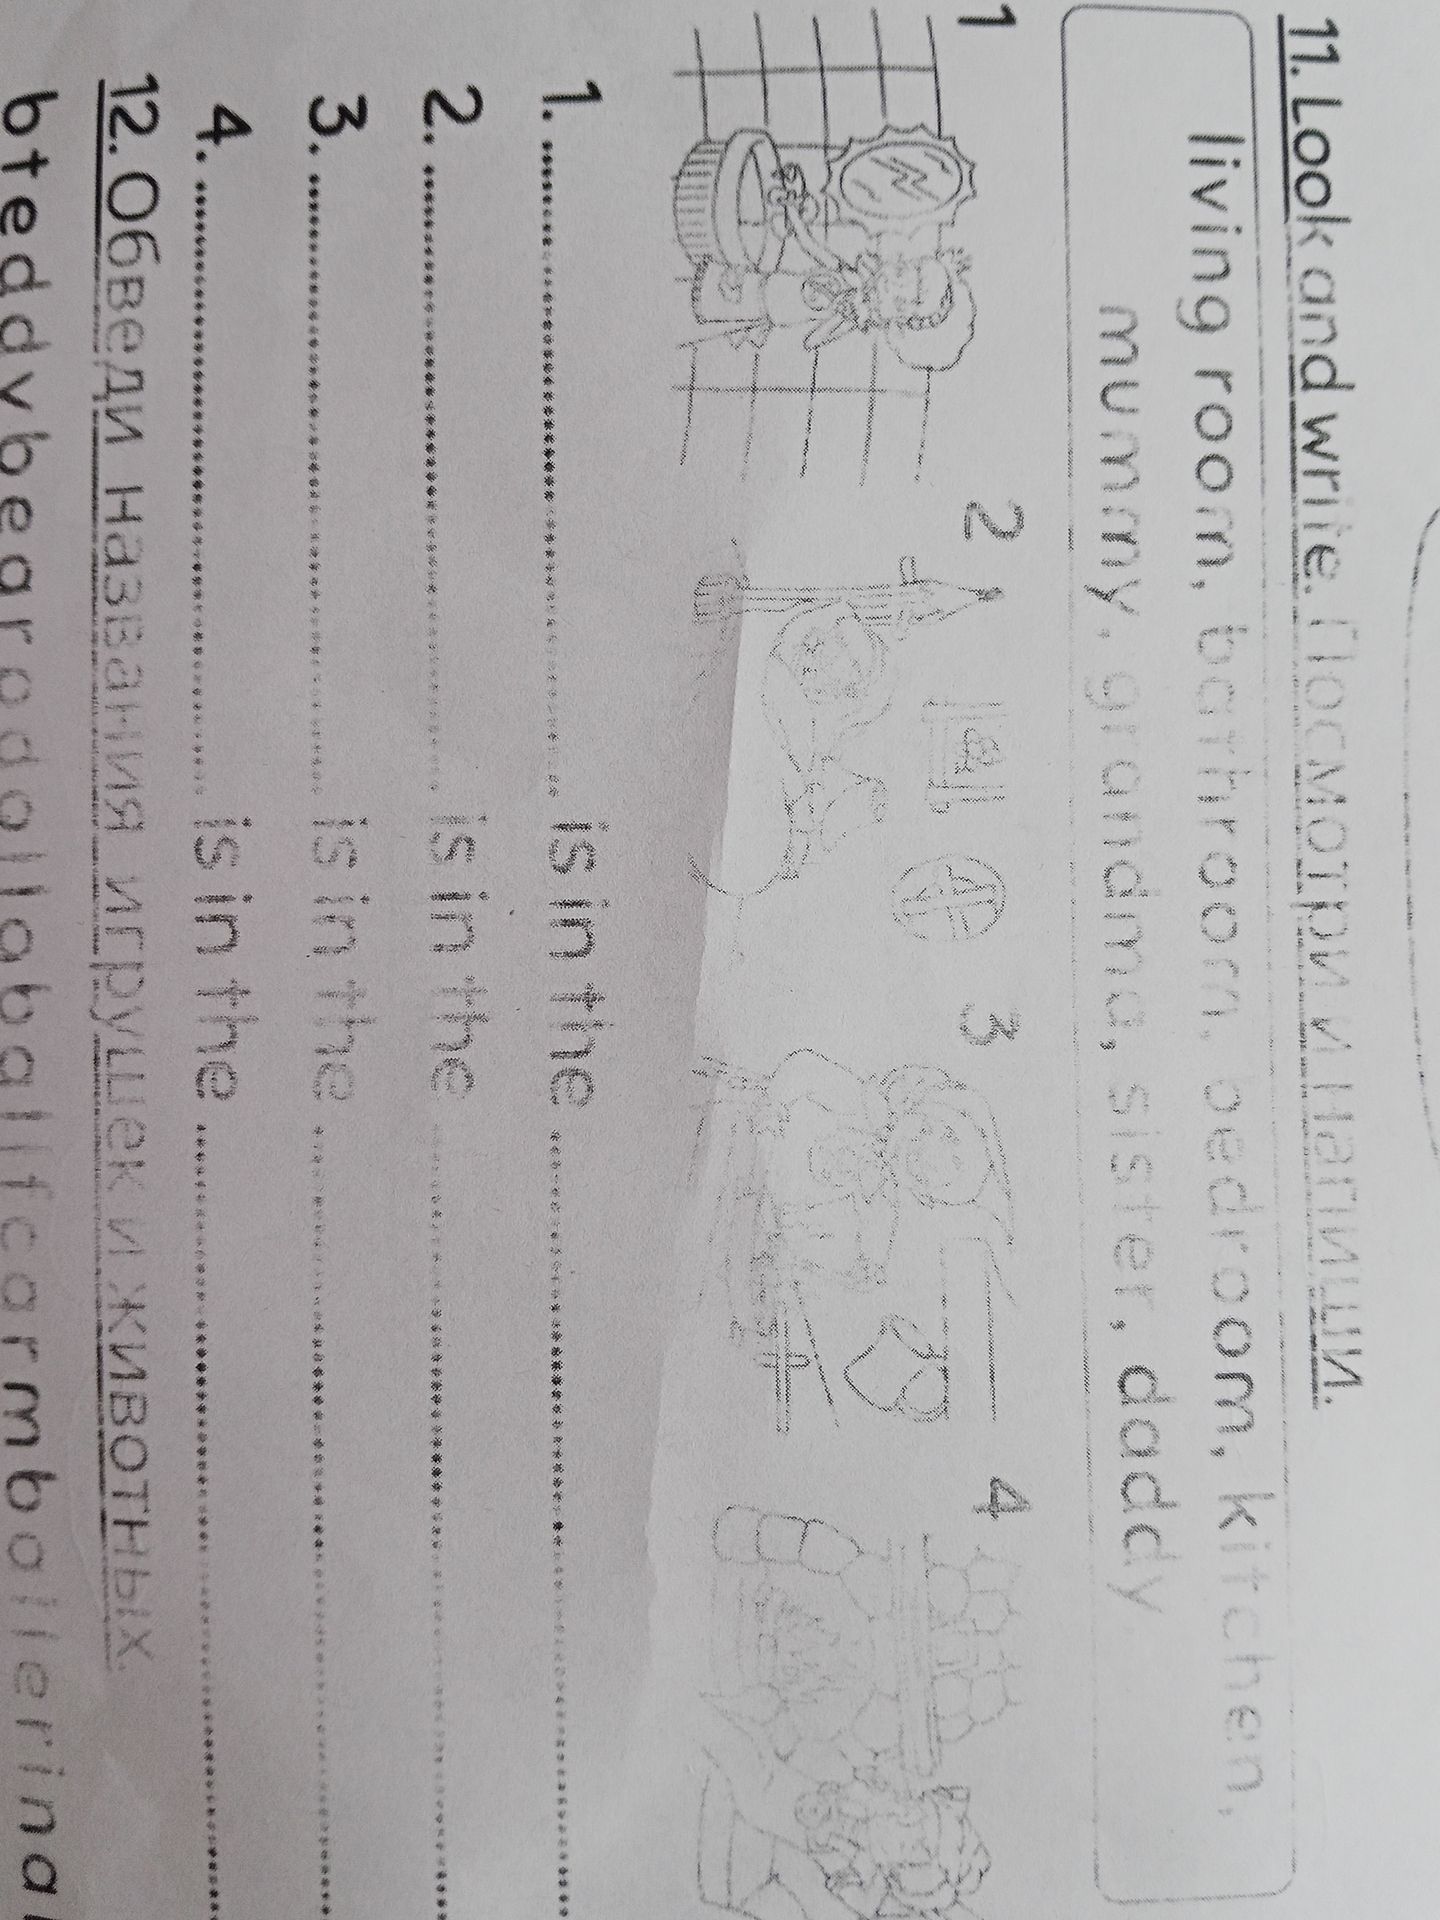 11. Look and write. Посмотри и напиши.
living room, bathroom, bedroom, kitchen,
mummy, grandma, sister, daddy
1 2 3 4
1. is in the
2. is in the
3. is in the
4. is in the
12. Обведи названия игрушек и животных.
btedvbearodollaballfcarmballerina